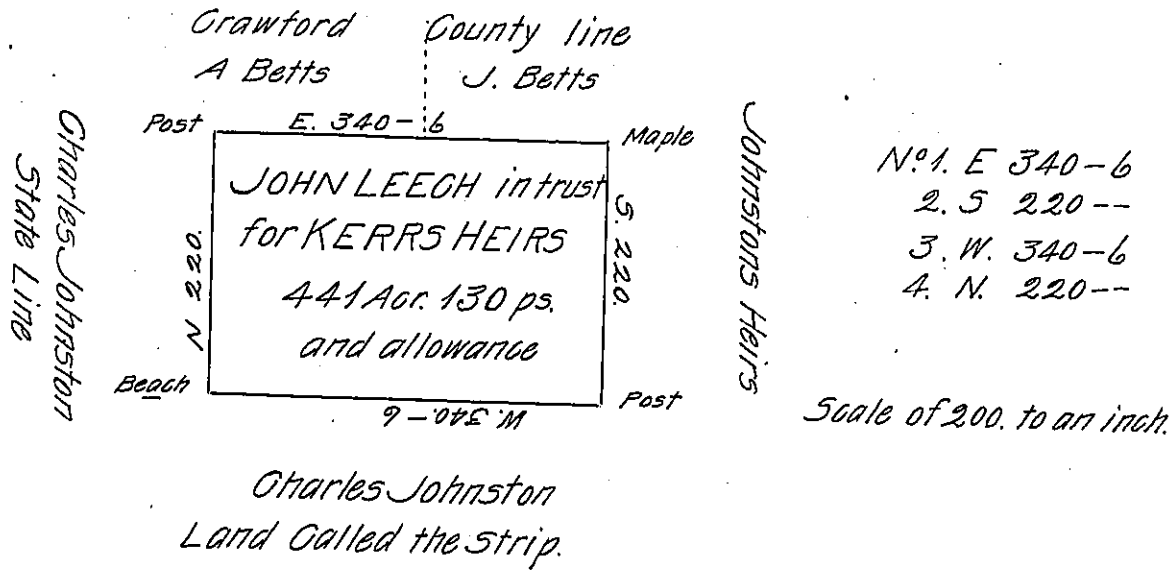 Crawford County line
A Betts J. Betts
Post E. 340-6 Maple
Charles Johnston
State Line
N 220.
JOHN LEECH in trust
for KERRS HEIRS
441 Acr. 130 ps.
and allowance
S. 220.
Johnstons Heirs
Beach W. 340-6 Post
Charles Johnston
Land Called the Strip.
No.1. E 340-6
2. S 220--
3. W. 340-6
4. N. 220--
Scale of 200. to an inch.